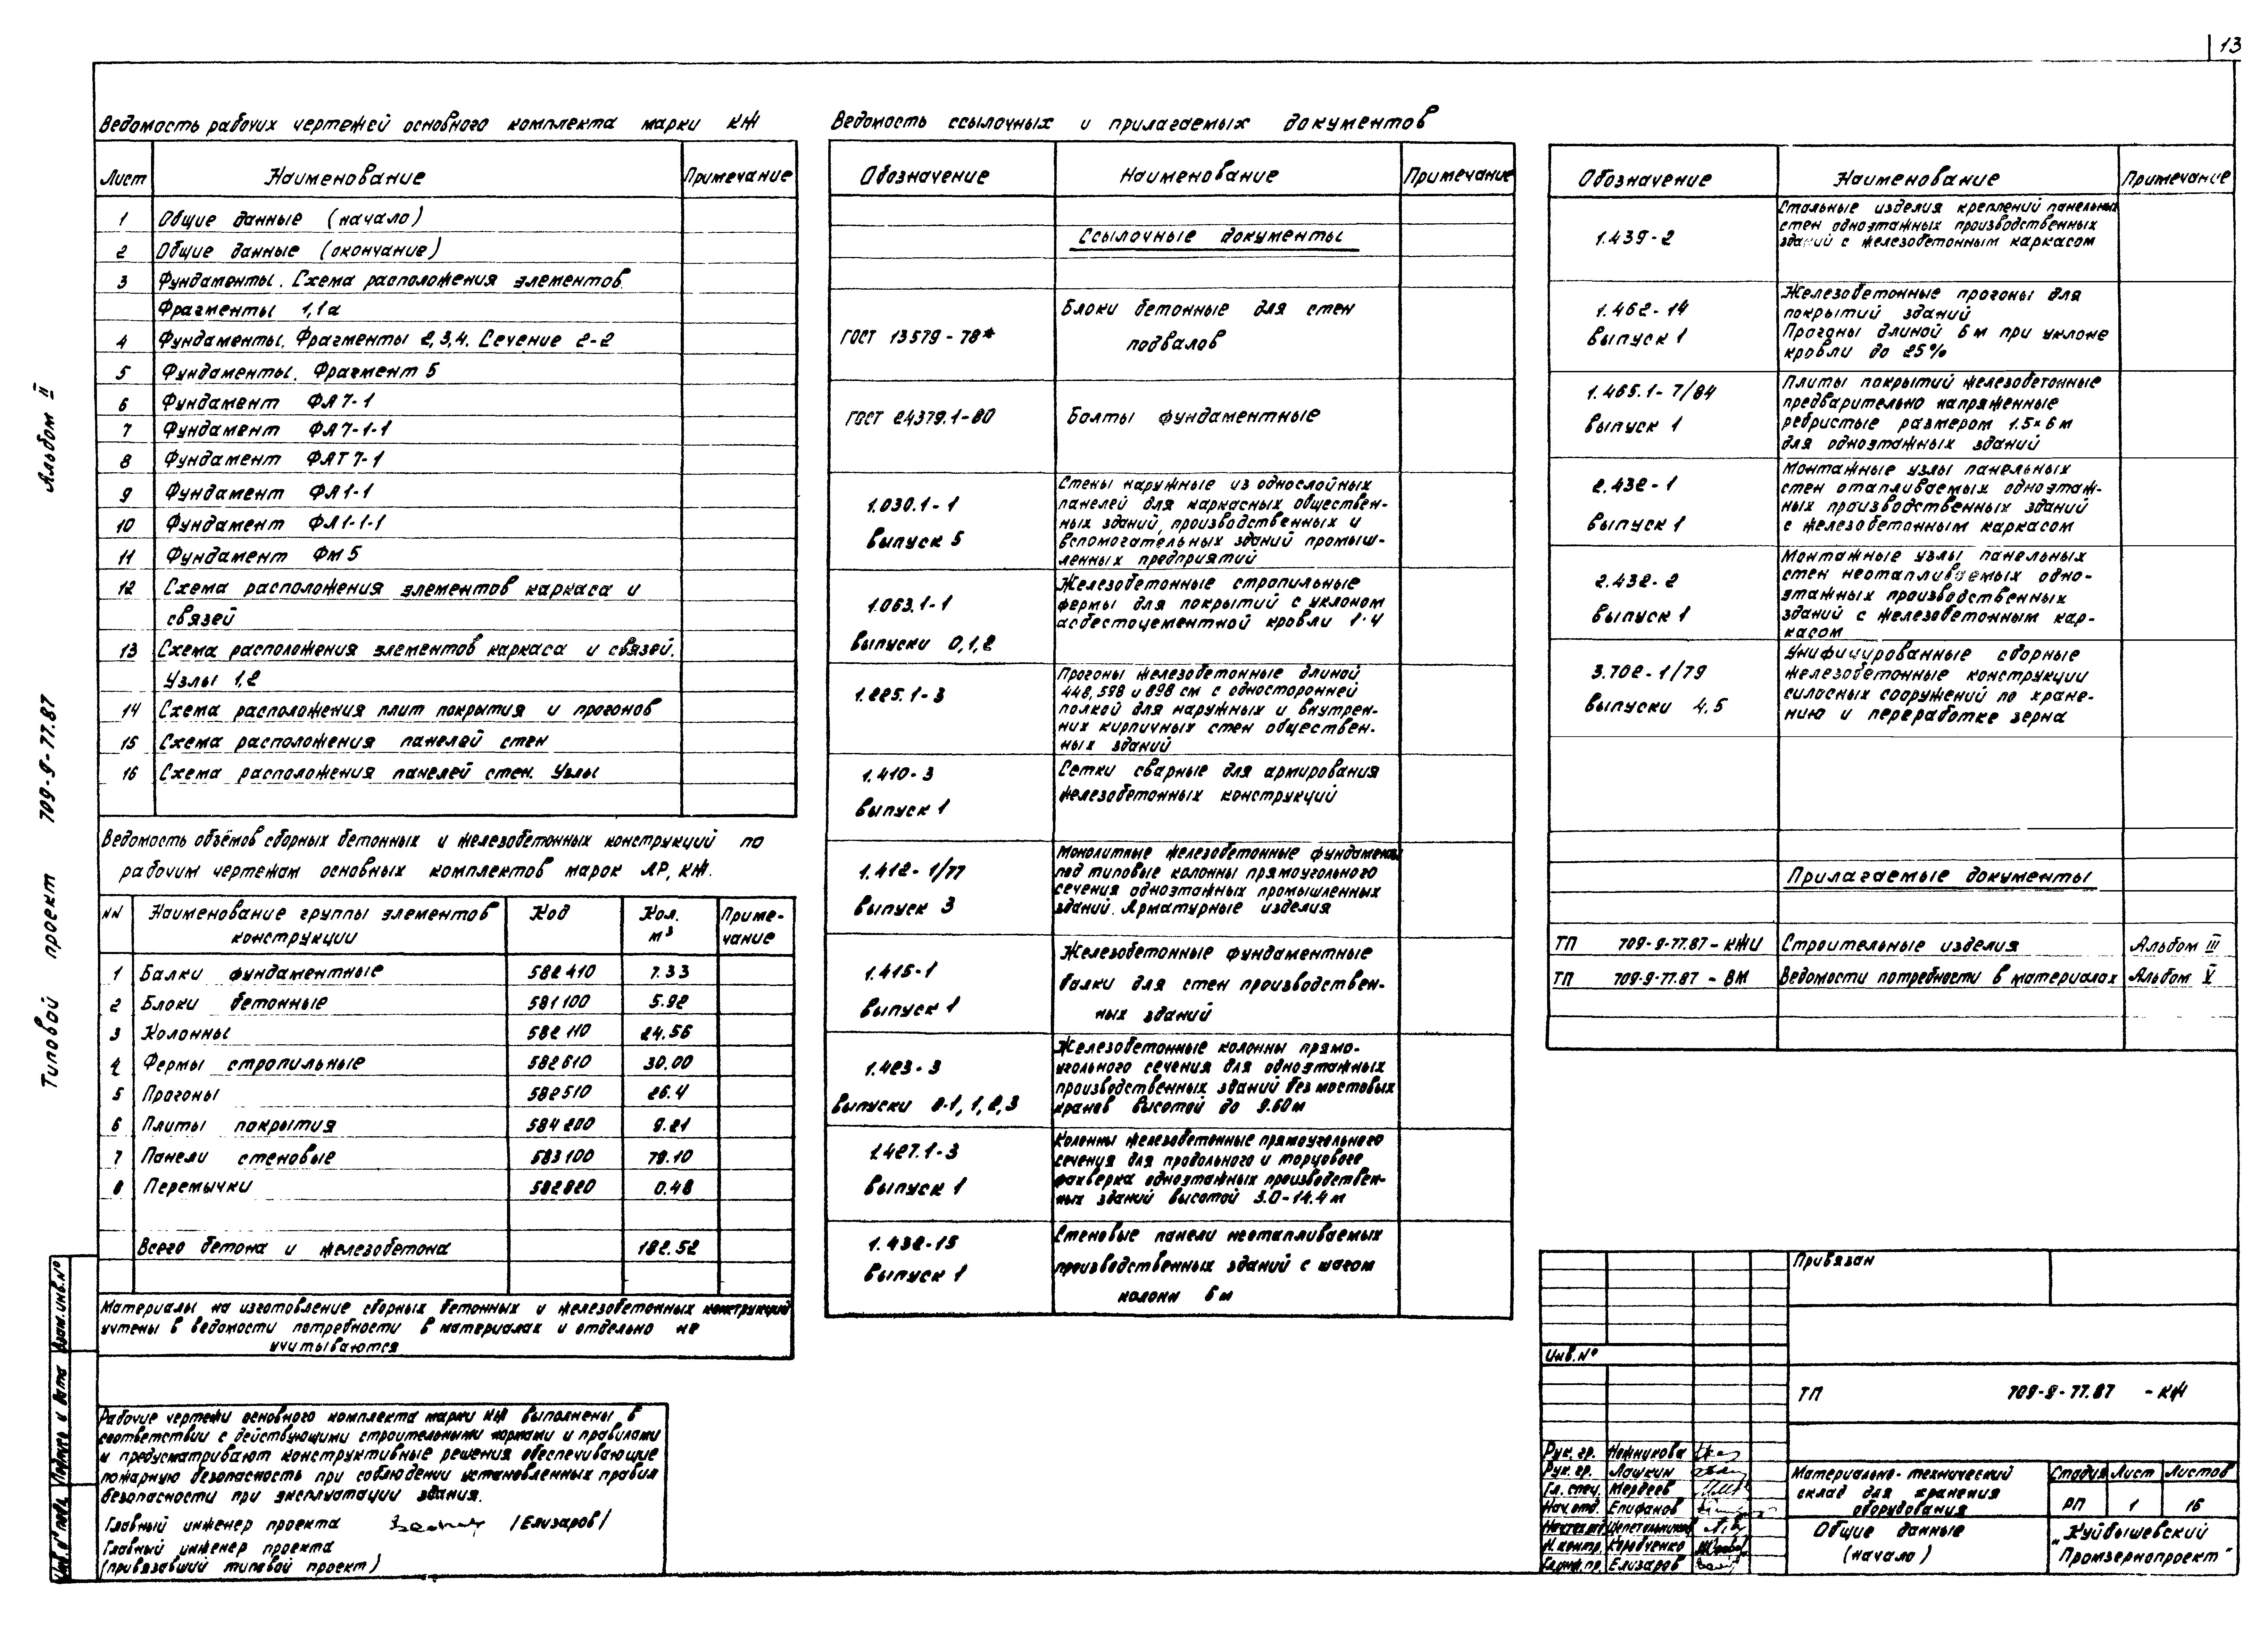 13
Ведомость рабочих чертежей основного комплекта марки КЖ
Лист Наименование Примечание
1 Общие данные (начало)
2 Общие данные (окончание)
3 Фундаменты. Схема расположения элементов.
Фрагменты 1,1а
4 Фундаменты. Фрагменты 2,3,4. Сечение 2-2
5 Фундаменты. Фрагмент 5
6 Фундамент ФА7-1
7 Фундамент ФА7-1-1
8 Фундамент ФАТ7-1
9 Фундамент ФА1-1
10 Фундамент ФА1-1-1
11 Фундамент Фм5
12 Схема расположения элементов каркаса и
связей
13 Схема расположения элементов каркаса и связей.
Узлы 1,2
14 Схема расположения плит покрытия и прогонов
15 Схема расположения панелей стен
16 Схема расположения панелей стен. Узлы
Ведомость объёмов сборных бетонных и железобетонных конструкций по
рабочим чертежам основных комплектов марок АР, КЖ.
NN Наименование группы элементов Код Кол. Приме-
конструкции м³ чание
1 Балки фундаментные 582410 7.33
2 Блоки бетонные 581100 5.92
3 Колонны 582110 24.56
4 Фермы стропильные 582610 30.00
5 Прогоны 582510 26.4
6 Плиты покрытия 584200 9.21
7 Панели стеновые 583100 79.10
8 Перемычки 582820 0.48
Всего бетона и железобетона 182.52
Материалы на изготовление сборных бетонных и железобетонных конструкций
учтены в ведомости потребности в материалах и отдельно не
учитываются
Рабочие чертежи основного комплекта марки КЖ выполнены в
соответствии с действующими строительными нормами и правилами
и предусматривают конструктивные решения обеспечивающие
пожарную безопасность при соблюдении установленных правил
безопасности при эксплуатации здания.
Главный инженер проекта /Елизаров/
Главный инженер проекта
(привязавший типовой проект)
Ведомость ссылочных и прилагаемых документов
Обозначение Наименование Примечание
Ссылочные документы
ГОСТ 13579-78* Блоки бетонные для стен
подвалов
ГОСТ 24379.1-80 Болты фундаментные
1.030.1-1
Выпуск 5
Стены наружные из однослойных
панелей для каркасных обществен-
ных зданий, производственных и
вспомогательных зданий промыш-
ленных предприятий
1.063.1-1
Выпуски 0,1,2
Железобетонные стропильные
фермы для покрытий с уклоном
асбестоцементной кровли 1:4
1.225.1-3
Прогоны железобетонные длиной
448, 598 и 898 см с односторонней
полкой для наружных и внутрен-
них кирпичных стен обществен-
ных зданий
1.410-3
Выпуск 1
Сетки сварные для армирования
железобетонных конструкций
1.412-1/77
Выпуск 3
Монолитные железобетонные фундаменты
под типовые колонны прямоугольного
сечения одноэтажных промышленных
зданий. Арматурные изделия
1.415-1
Выпуск 1
Железобетонные фундаментные
балки для стен производствен-
ных зданий
1.423-3
Выпуски 0-1, 1, 2, 3
Железобетонные колонны прямо-
угольного сечения для одноэтажных
производственных зданий без мостовых
кранов высотой до 9.60м
1.427.1-3
Выпуск 1
Колонны железобетонные прямоугольного
сечения для продольного и торцового
фахверка одноэтажных производствен-
ных зданий высотой 3.0-14.4м
1.432-15
Выпуск 1
Стеновые панели неотапливаемых
производственных зданий с шагом
колонн 6м
Обозначение Наименование Примечание
1.439-2
Стальные изделия креплений панельных
стен одноэтажных производственных
зданий с железобетонным каркасом
1.462-14
Выпуск 1
Железобетонные прогоны для
покрытий зданий
Прогоны длиной 6м при уклоне
кровли до 25%
1.465.1-7/84
Выпуск 1
Плиты покрытий железобетонные
предварительно напряженные
ребристые размером 1.5×6м
для одноэтажных зданий
2.432-1
Выпуск 1
Монтажные узлы панельных
стен отапливаемых одноэтаж-
ных производственных зданий
с железобетонным каркасом
2.432-2
Выпуск 1
Монтажные узлы панельных
стен неотапливаемых одно-
этажных производственных
зданий с железобетонным кар-
касом
3.702-1/79
Выпуски 4.5
Унифицированные сборные
железобетонные конструкции
силосных сооружений по хране-
нию и переработке зерна
Прилагаемые документы
ТП 709-9-77.87-КЖИ Строительные изделия Альбом III
ТП 709-9-77.87-ВМ Ведомости потребности в материалах Альбом V
Привязан
Инв.N°
ТП 709-9-77.87 -КЖ
Рук. гр. Ножникова
Рук. гр. Лашкин
Гл. спец. Мердеев
Нач.отд. Епифанов
Н.контр. Коробченко
Гл.инж.пр. Елизаров
Материально-технический
склад для хранения
оборудования
Стадия Лист Листов
РП 1 16
Общие данные
(начало)
"Куйбышевский
Промзернопроект"
Типовой проект 709-9-77.87 Альбом II
Инв.N°подл. Подпись и дата Взам.инв.N°